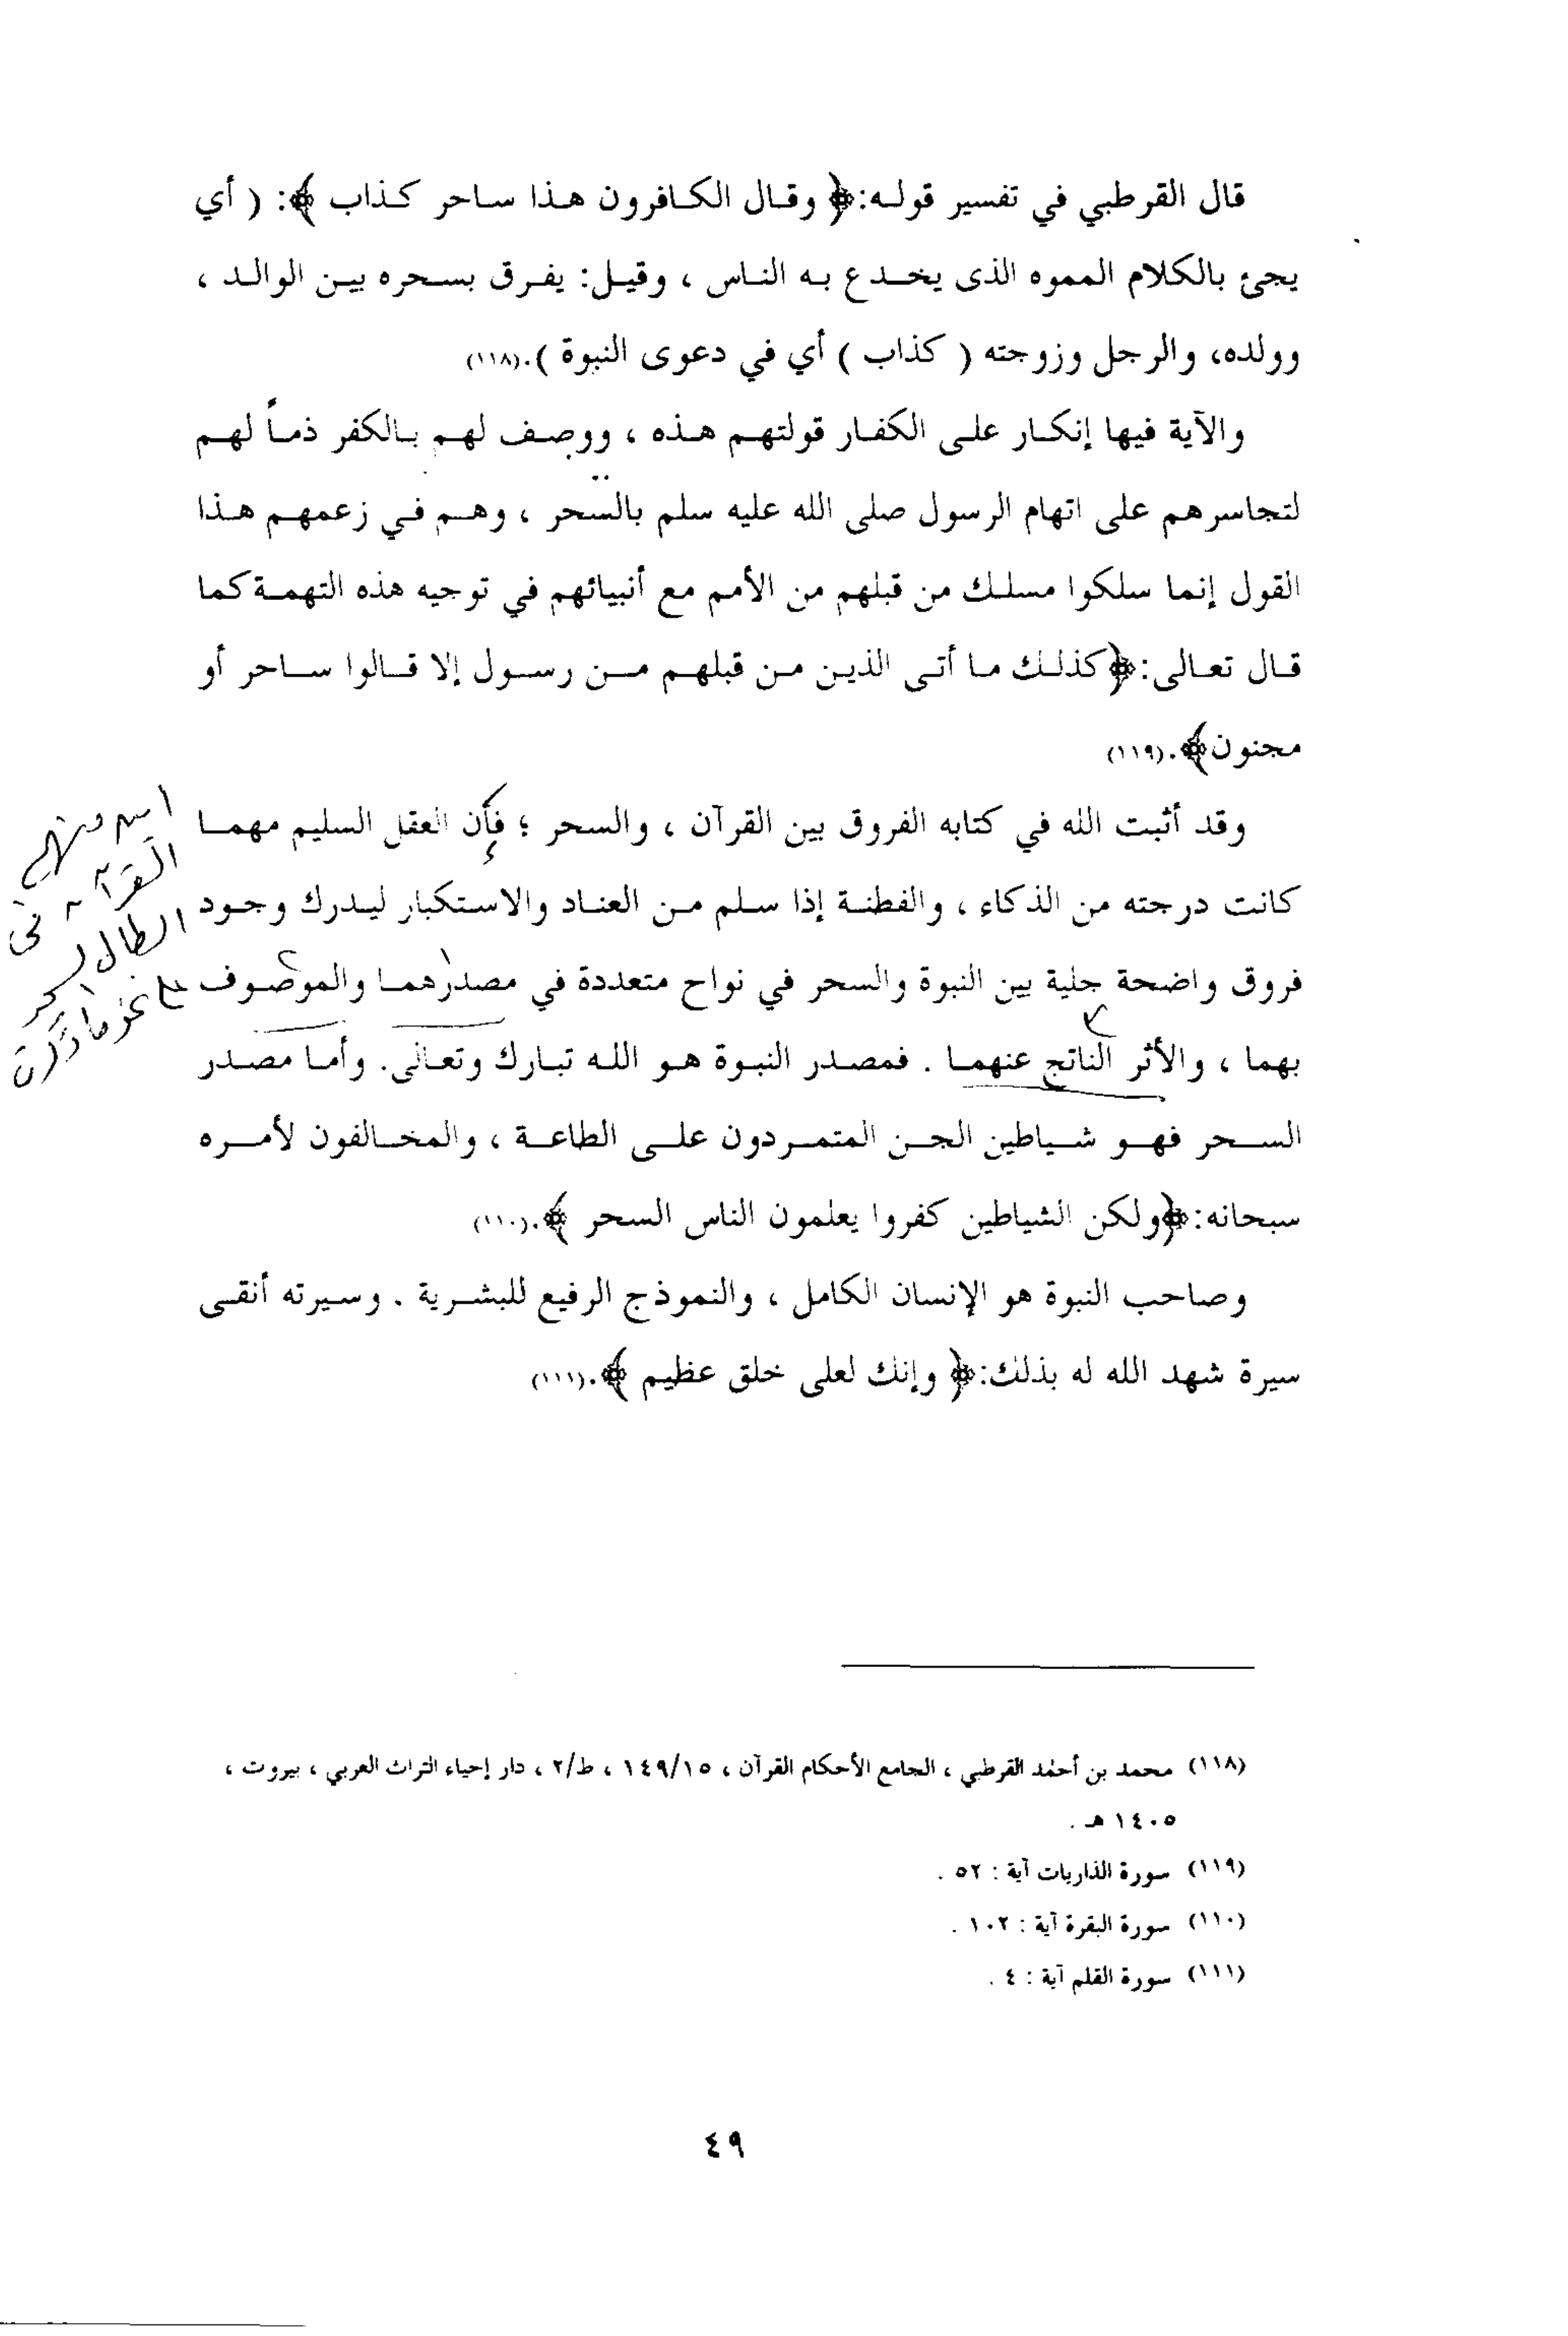 قال القرطبي في تفسير قوله:﴿ وقال الكافرون هذا ساحر كذاب ﴾: ( أي
يجئ بالكلام المموه الذى يخدع به الناس ، وقيل: يفرق بسحره بين الوالد ،
وولده، والرجل وزوجته ( كذاب ) أي في دعوى النبوة ).(١١٨)
والآية فيها إنكار على الكفار قولتهم هذه ، ووصف لهم بالكفر ذماً لهم
لتجاسرهم على اتهام الرسول صلى الله عليه سلم بالسحر ، وهم في زعمهم هذا
القول إنما سلكوا مسلك من قبلهم من الأمم مع أنبيائهم في توجيه هذه التهمة كما
قال تعالى:﴿كذلك ما أتى الذين من قبلهم من رسول إلا قالوا ساحر أو
مجنون﴾.(١١٩)
وقد أثبت الله في كتابه الفروق بين القرآن ، والسحر ؛ فأن العقل السليم مهما
كانت درجته من الذكاء ، والفطنة إذا سلم من العناد والاستكبار ليدرك وجود
فروق واضحة جلية بين النبوة والسحر في نواح متعددة في مصدرهما والموصوف
بهما ، والأثر الناتج عنهما . فمصدر النبوة هو الله تبارك وتعالى. وأما مصدر
السحر فهو شياطين الجن المتمردون على الطاعة ، والمخالفون لأمره
سبحانه:﴿ولكن الشياطين كفروا يعلمون الناس السحر ﴾.(١١٠)
وصاحب النبوة هو الإنسان الكامل ، والنموذج الرفيع للبشرية . وسيرته أنقى
سيرة شهد الله له بذلك:﴿ وإنك لعلى خلق عظيم ﴾.(١١١)
القرآن في
(١١٨) محمد بن أحمد القرطبي ، الجامع الأحكام القرآن ، ١٤٩/١٥ ، ط/٢ ، دار إحياء التراث العربي ، بيروت ،
١٤٠٥ هـ .
(١١٩) سورة الذاريات آية : ٥٢ .
(١١٠) سورة البقرة آية : ١٠٢ .
(١١١) سورة القلم آية : ٤ .
٤٩